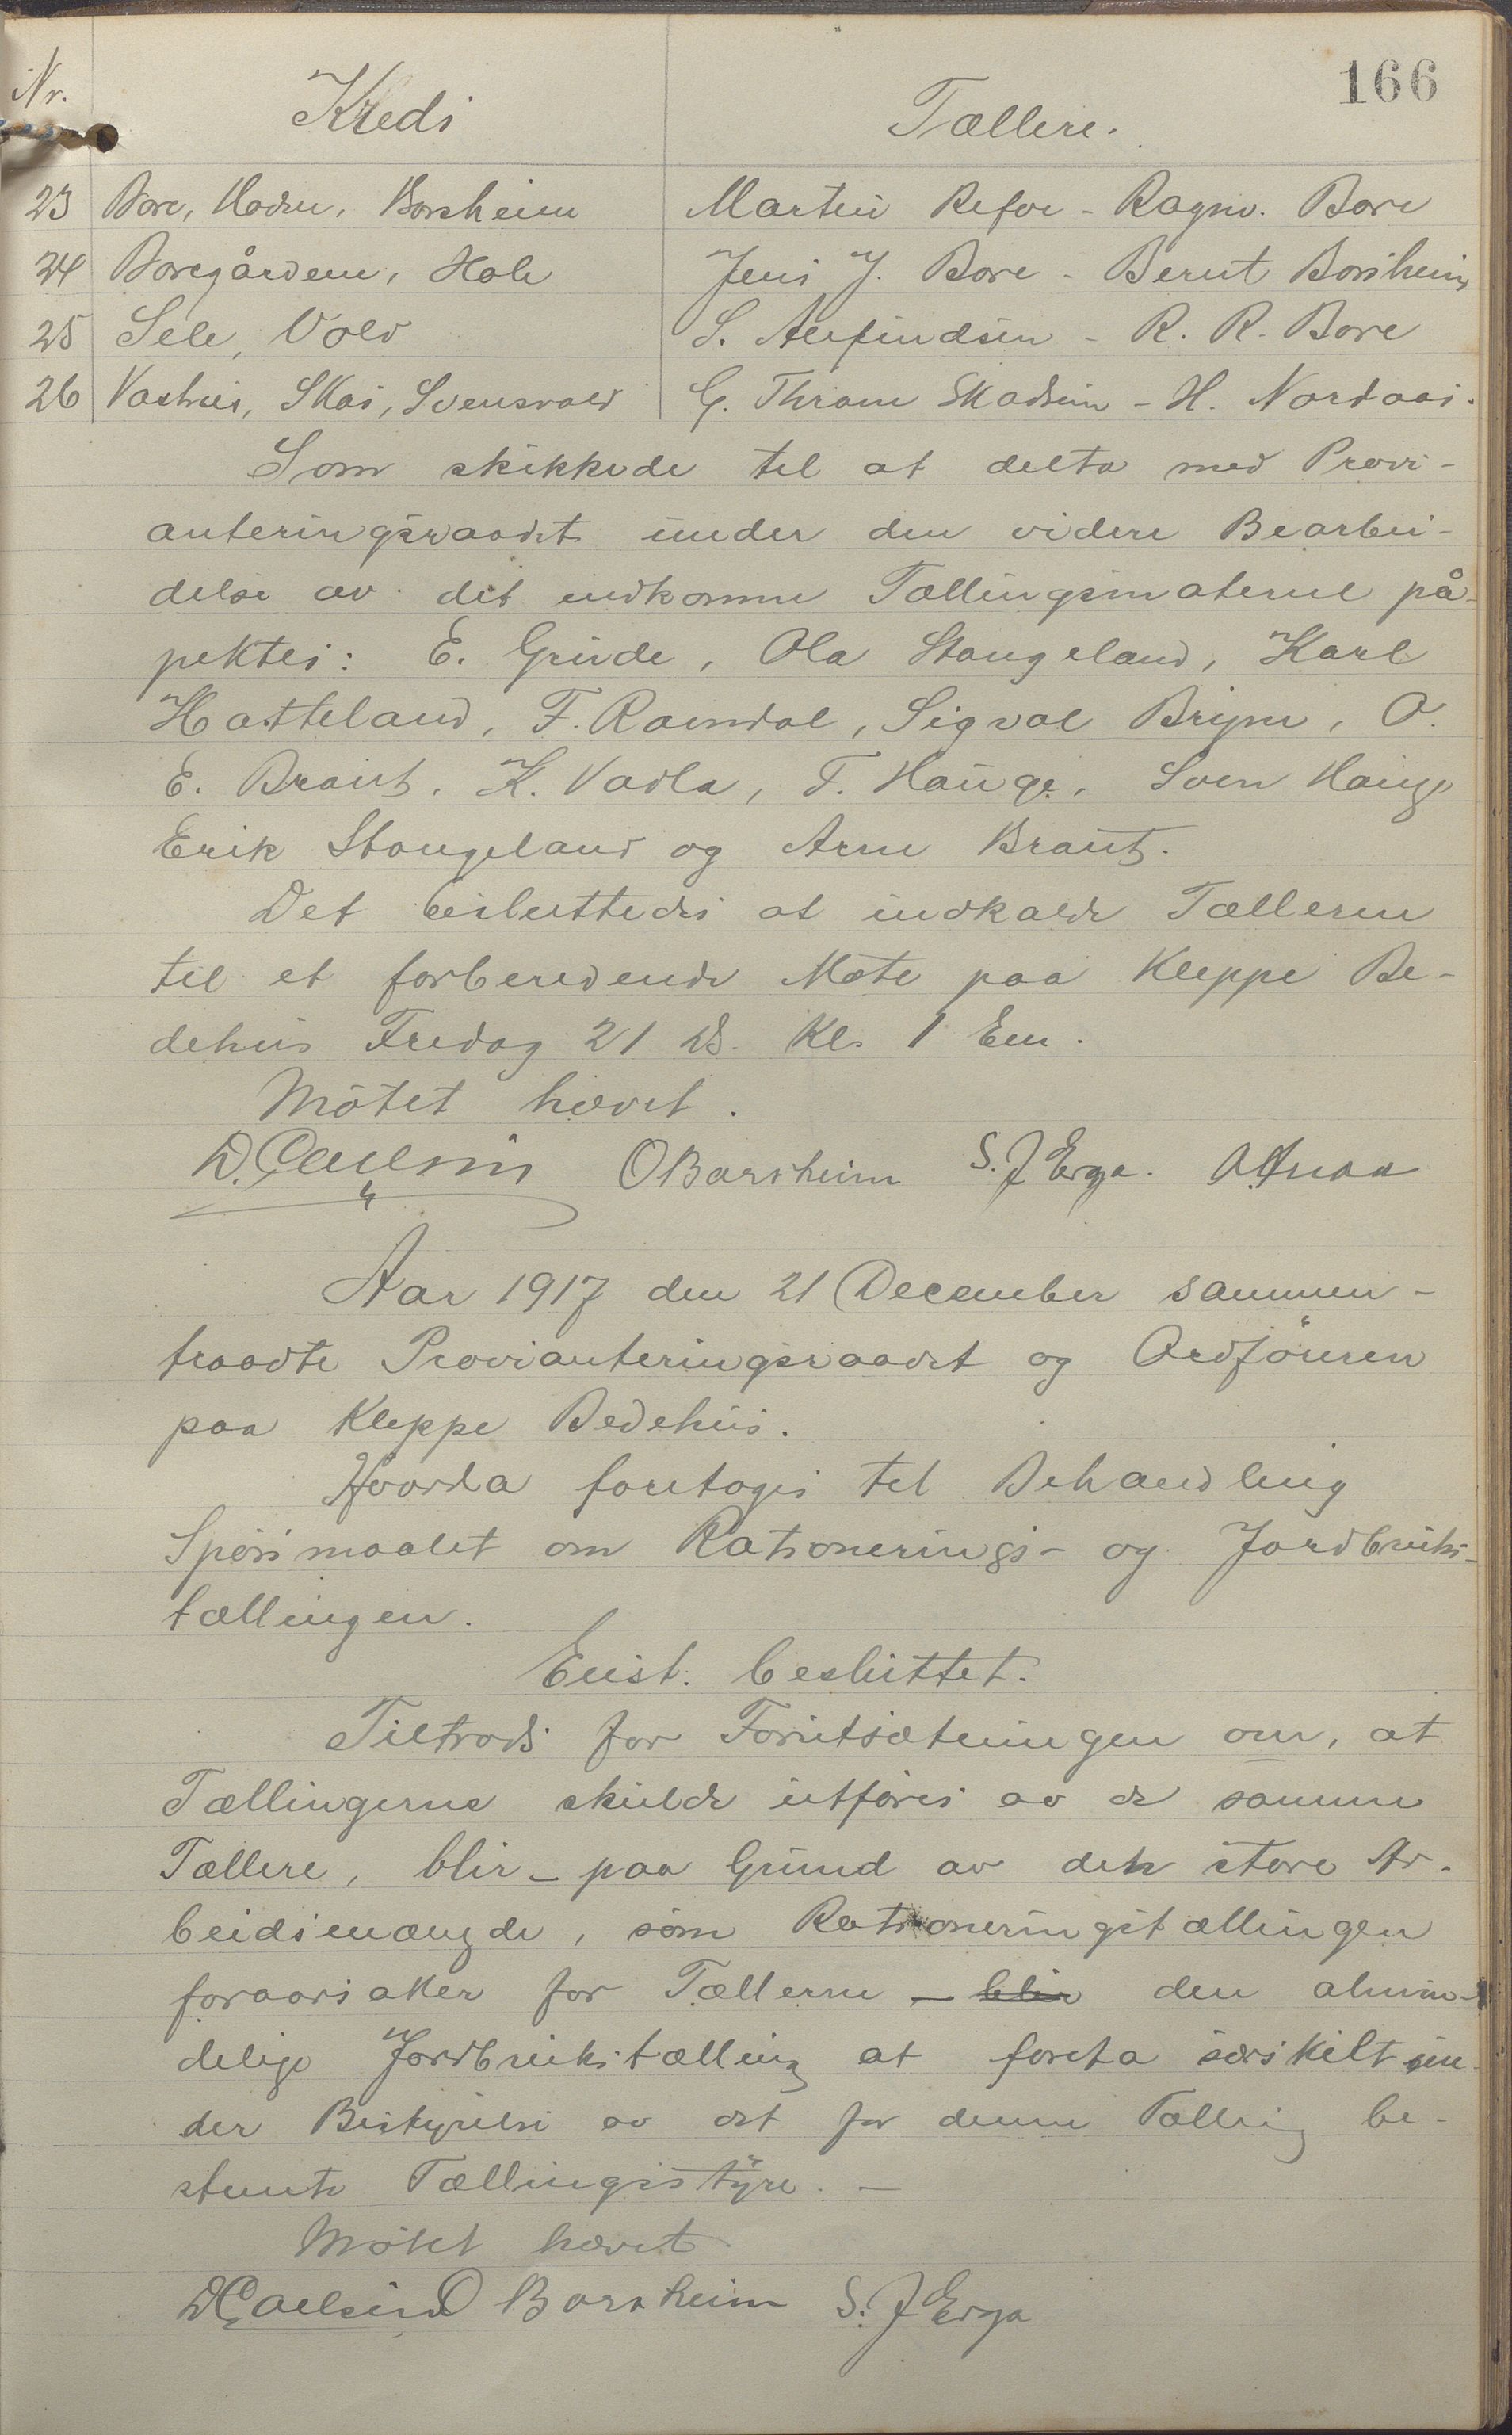 166
Nr. Kreds Tællere.
23 Bore, Hodne, Borsheim Martin Refve - Ragnv. Bore
24 Boregårdene, Hole Jens J. Bore - Bernt Borsheim
25 Sele, Vold S. Aufindsen - R. R. Bore
26 Vashus, Skas, Svensvold G. Thrane Skadsem - H. Nordaas.
Som skikkede til at delta med Provi-
anteringsraadet under den videre Bearbei-
delse av det indkomne Tællingsmateriel på-
pektes: E. Grude, Ola Stangeland, Karl
Hatteland, F. Roendal, Sigval Bryne, O.
E. Braut, K. Vadla, T. Hauge, Sven Hauge
Erik Stangeland og Arne Braut.
Det besluttedes at indkalde Tællerne
til et forberedende Møte paa Kleppe Be-
dehus Fredag 21 ds. Kl. 1 Em.
Mötet hævet.
D. Paulsen O Borsheim S. J Erga.
Aar 1917 den 21 December sammen-
traadte Provianteringsraadet og Ordföreren
paa Kleppe Bedehus.
Hvorda foretoges til Behandling
Spörsmaalet om Rationerings- og Jordbruks-
tællingen.
Enst. besluttet.
Tiltrods for Forutsætningen om, at
Tællingerne skulde utföres av de samme
Tællere, blir - paa Grund av den store Ar-
beidsmængde, som Rationeringstællingen
foraarsaker for Tællerne - blir den almin-
delige Jordbrukstælling at foreta særskilt un-
der Bestyrelse av det for denne Tælling be-
stemte Tællingsstyre. -
Mötet hævet
D Paulsen O Borsheim S. J Erga